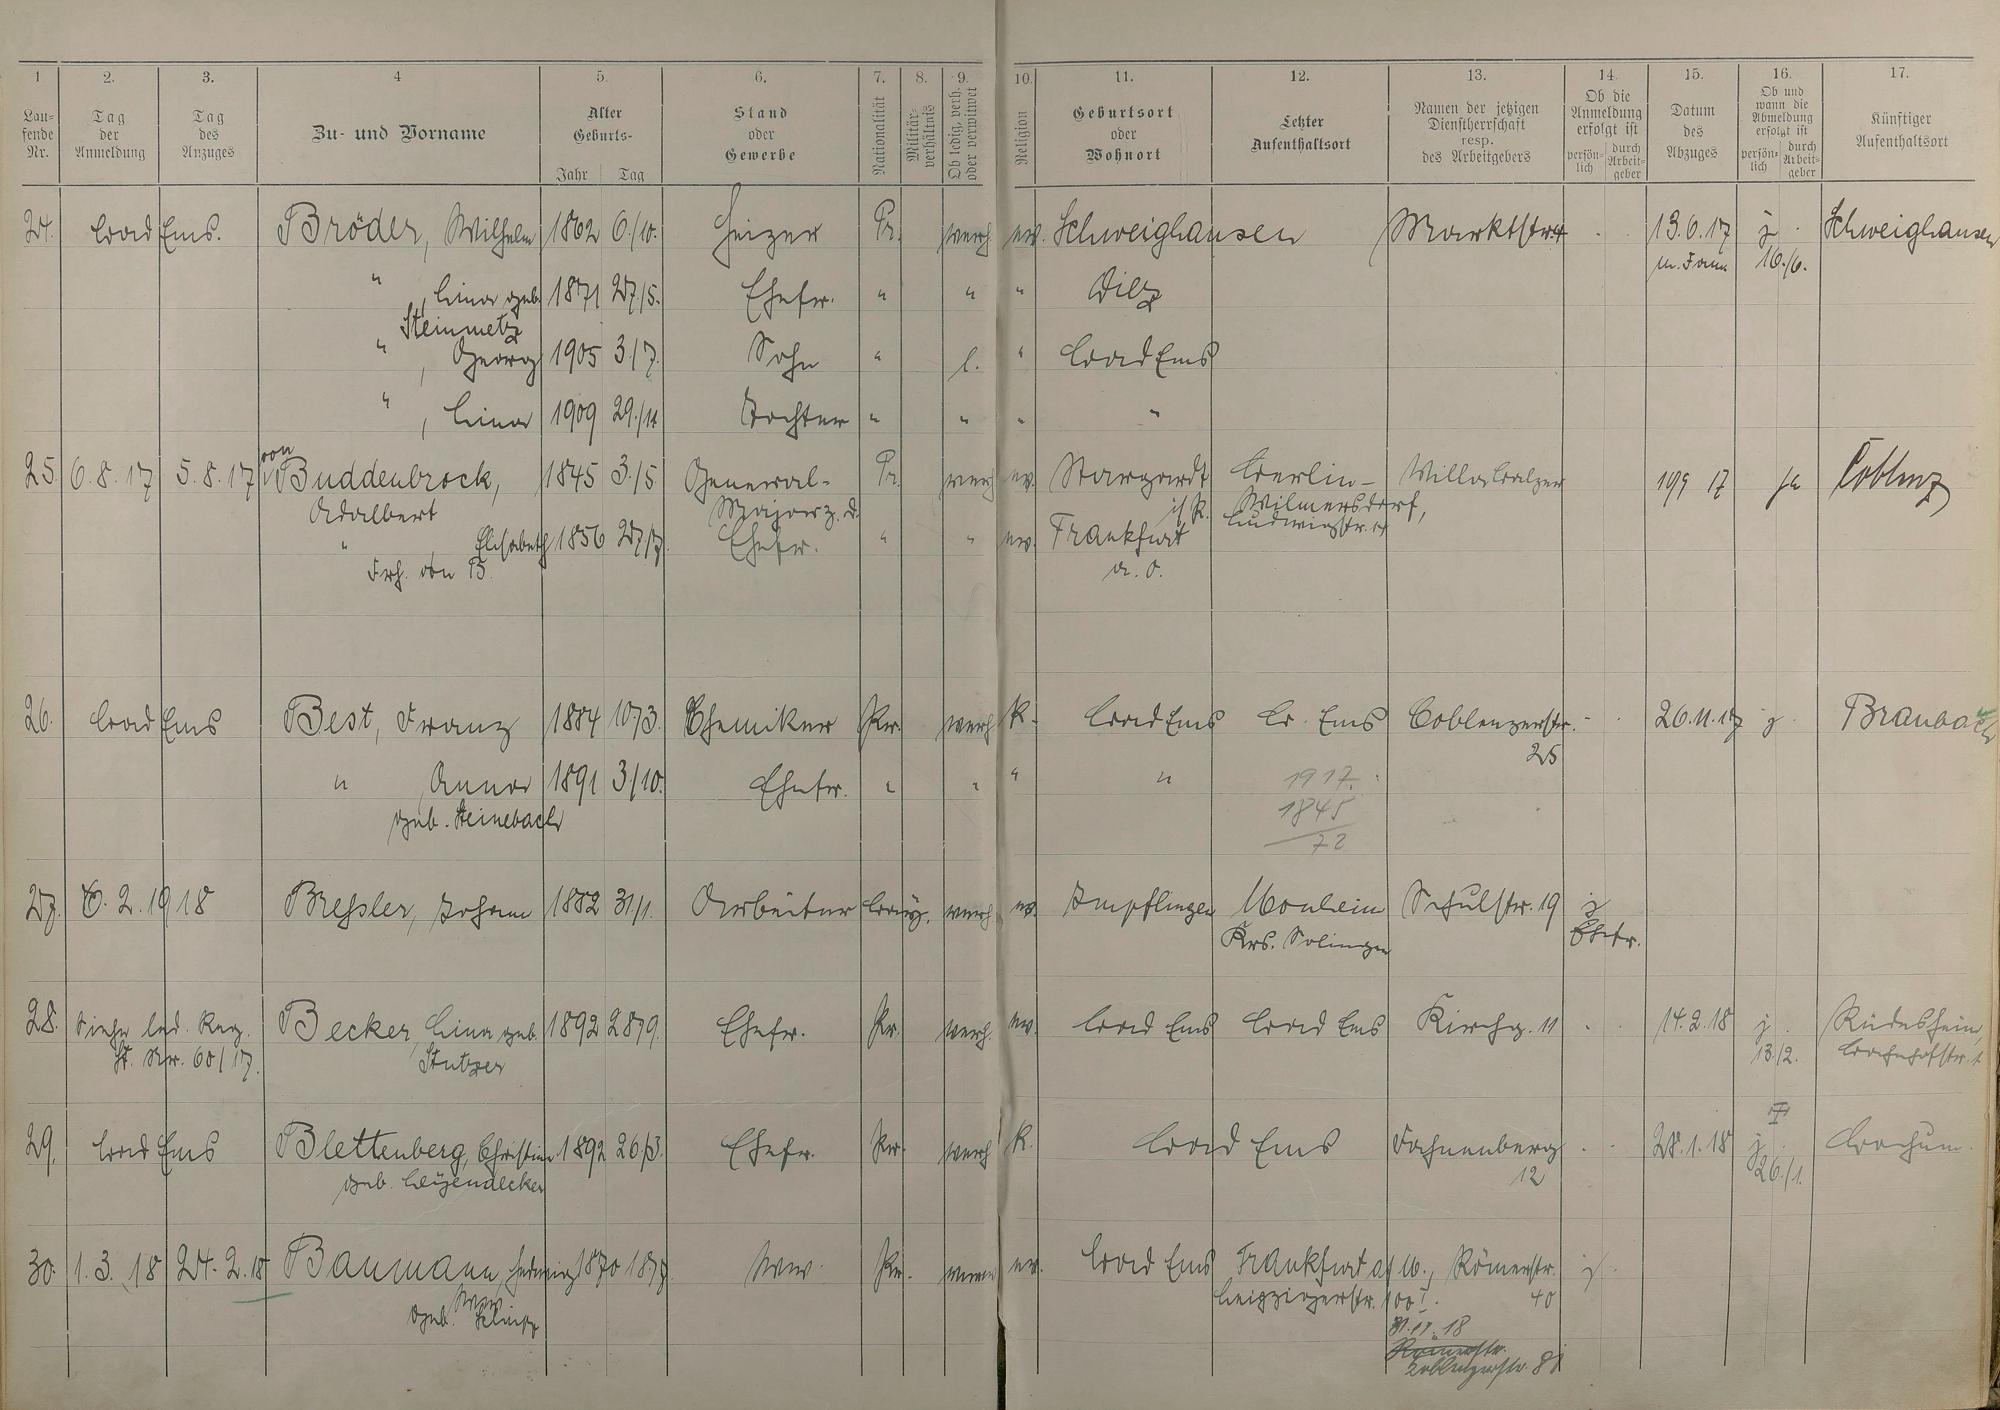 1 2. 3. 4 5. 6. 7. 8. 9. 10. 11. 12. 13. 14. 15. 16. 17.
Lau-
fende
Nr.
Tag
der
Anmeldung
Tag
des
Anzuges
Zu- und Vorname
Alter
Geburts-
Jahr Tag
Stand
oder
Gewerbe
Nationalität
Militär-
verhältnis
Ob ledig, verh.
oder verwitwet
Religion
Geburtsort
oder
Wohnort
Letzter
Aufenthaltsort
Namen der jetzigen
Dienstherrschaft
resp.
des Arbeitgebers
Ob die
Anmeldung
erfolgt ist
persön-
lich
durch
Arbeit-
geber
Datum
des
Abzuges
Ob und
wann die
Abmeldung
erfolgt ist
persön-
lich
durch
Arbeit-
geber
Künftiger
Aufenthaltsort
24. Bad Ems. Bröder, Wilhelm 1862 6./10. Heizer Pr. verh. ev. Schweighausen Marktstr. 4 13.6.17 j. Schweighausen
m. Fam 16./6.
" , Lina geb. 1871 27/5. Ehefr. " " " Diez
Steinmetz
" , Georg 1905 3/7. Sohn " l. " Bad Ems
" , Lina 1909 29./11 Tochter " " " "
25. 6.8.17 5.8.17 von Buddenbrock, 1845 3./5 General- Pr. verh ev. Stargardt Berlin- Villa Balzer 10/9 17 ja Coblenz
Adalbert Major z. D. i/P. Wilmersdorf,
" Elisabeth 1856 27/7. Ehefr. " " ev. Frankfurt Ludwigstr.
Frh. von B. a. O.
26. Bad Ems Best, Franz 1884 10/3. Chemiker Pr. verh k. Bad Ems B. Ems Coblenzerstr. 26.11.17 j. Braubach
25
" , Anna 1891 3/10. Ehefr. " " " " 1917.
geb. Steinebach 1845
72
27. 6. 2. 1918 Bressler, Johann 1882 31./1. Arbeiter bay. verh. ev. Impflingen Monheim Schulstr. 19 j
Krs. Solingen Ehefr.
28. Siehe led. Reg. Becker, Lina geb. 1892 28/9. Ehefr. Pr. verh. ev. Bad Ems Bad Ems Kirchg. 11 14.2.18 j. Rüdesheim,
St. Nr. 60/17. Stutzer 13./2. Bahnhofstr. 1
29. Bad Ems Blettenberg, Christine 1892 26/3. Ehefr. Pr. verh k. Bad Ems Fachnenberg 28.1.18 j. Bochum.
geb. Leyendecker 12 26./1.
30. 1.3.18 24.2.18 Baumann, Hedwig 1870 18/7. Wwe. Pr. verw. ev. Bad Ems Frankfurt a/M., Römerstr. j.
Wwe Leipzigerstr. 100 I. 40
geb.
18
Römerstr.
Coblenzerstr. 81